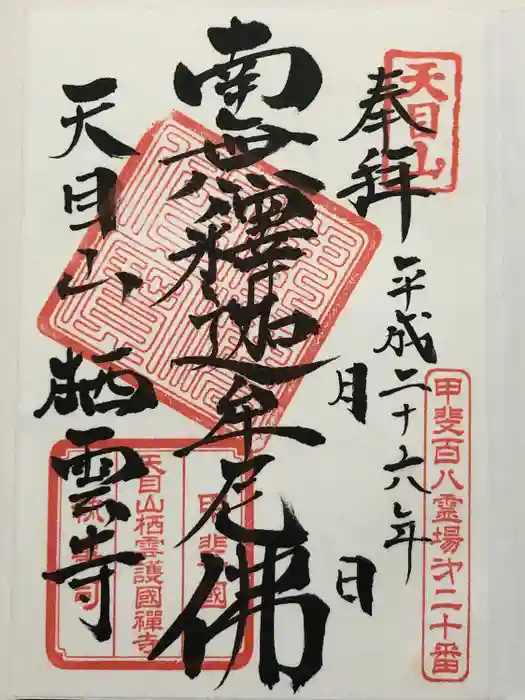 天目山
奉拜
平成二十六年
月 日
甲斐百八靈場才二十番
南無釋迦牟尼佛
天目山 栖雲寺
甲斐國
天目山栖雲護國禪寺